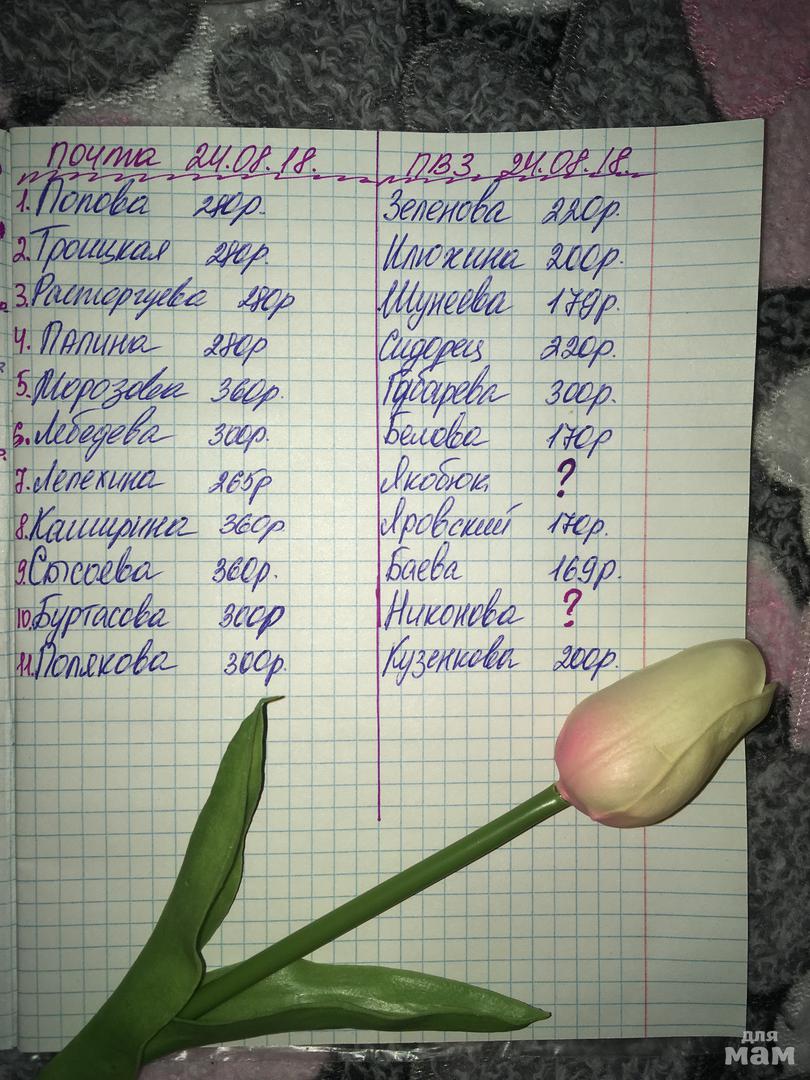 почта 24.08.18.
1. Попова 280р.
2. Троицкая 280р.
3. Расторгуева 280р
4. Палина 280р
5. Морозова 360р.
6. Лебедева 300р.
7. Лепехина 265р
8. Каширина 360р
9. Сысоева 360р.
10. Буртасова 300р
11. Полякова 300р.
ПВЗ 24.08.18.
Зеленова 220р.
Илюхина 200р.
Шунеева 179р.
Сидорец 220р.
Губарева 300р.
Белова 170р
Якобюк ?
Яровский 170р.
Баева 169р.
Никонова ?
Кузенкова 200р.
для
мам